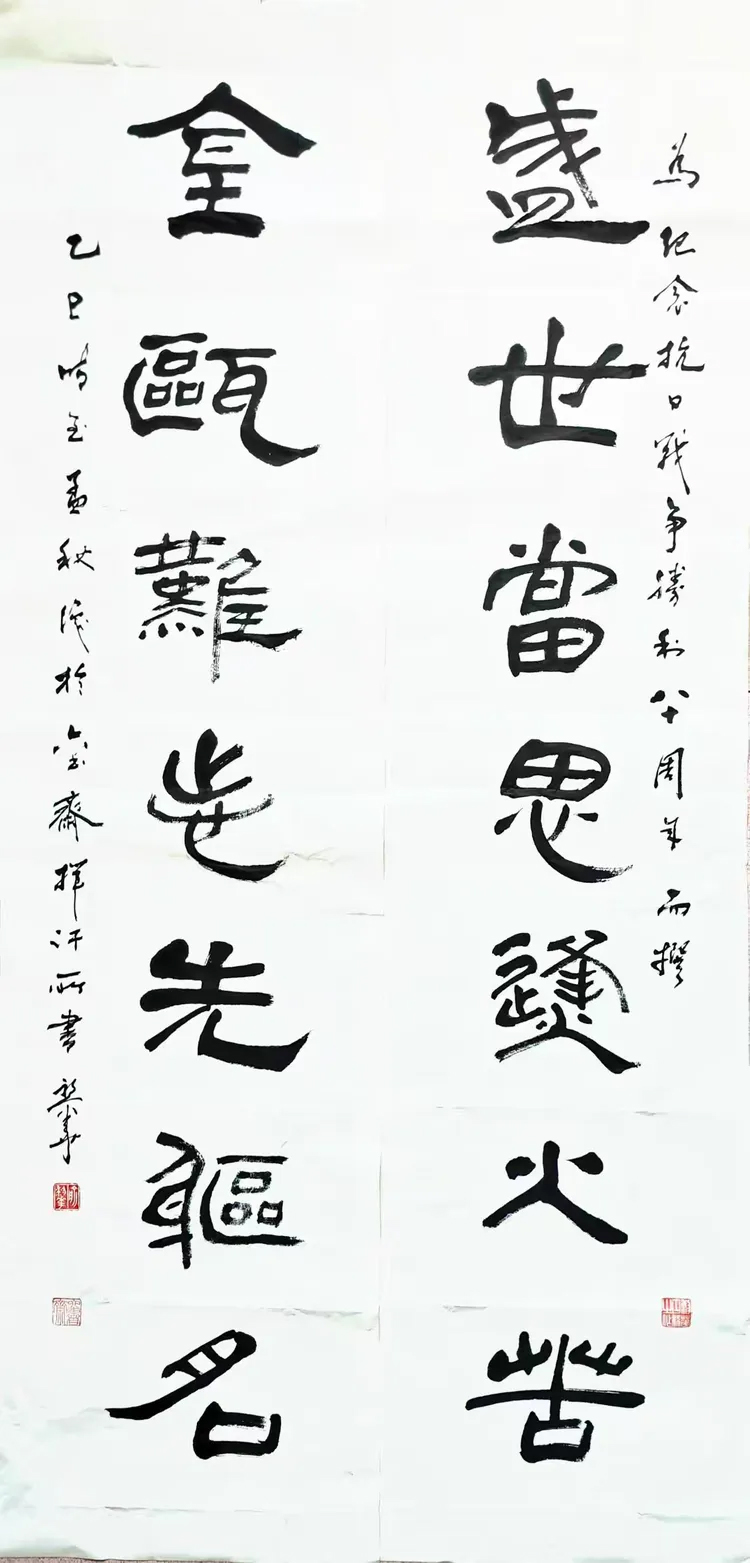 為紀念抗日戰争勝利八十周年而撰
盛世當思㷭火苦
金甌難忘先軀名
乙巳時至孟秋於齋揮汗所書